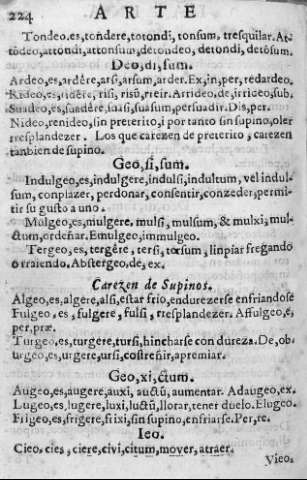 224 ARTE
Tondeo,es,tondere,totondi,tonsum, tresquilar.At-
tõdeo,attondi,attonsum,detondeo, detondi, detõsum.
Deo,di,sum.
Ardeo,es,ardêre,arsi,arsum,arder.Ex,in,per, redardeo.
Rideo,es,ridêre, risi, risũ,reir.Arrideo,de,irrideo,sub.
Suadeo,es,suadêre,suasi,suasum,persuadir.Dis,per.
Nideo,renideo,sin preterito,i por tanto sin supino,oler
rresplandezer. Los que carezen de preterito, carezen
tanbien de supino.
Geo,si,sum.
Indulgeo,es,indulgere,indulsi,indultum, vel indul-
sum, conplazer, perdonar, consentir,conzeder,permi-
tir su gusto a uno.
Mulgeo,es,mulgere, mulsi, mulsum, & mulxi,mul-
ctum,ordeñar.Emulgeo,immulgeo.
Tergeo,es, tergêre, tersi, tersum, linpiar fregando
o rraiendo.Abstergeo,de,ex.
Carezen de Supinos.
Algeo,es,algêre,alsi,estar frio,endurezerse enfriandose
Fulgeo,es, fulgere, fulsi, rresplandezer. Affulgeo,e,
per,præ.
Turgeo,es,turgere,tursi,hincharse con dureza.De,ob-
urgeo,es,urgere,ursi,costreñir,apremiar.
Geo,xi,ctum.
Augeo,es,augere,auxi, auctũ,aumentar. Adaugeo,ex.
Lugeo,es,lugere,luxi,luctũ,llorar,tener duelo.Elugeo.
Frigeo,es,frigere,frixi,sin supino,enfriarse.Per,re.
Ieo.
Cieo,cies,ciere,civi,citum,mover,atraer.
Vieo.